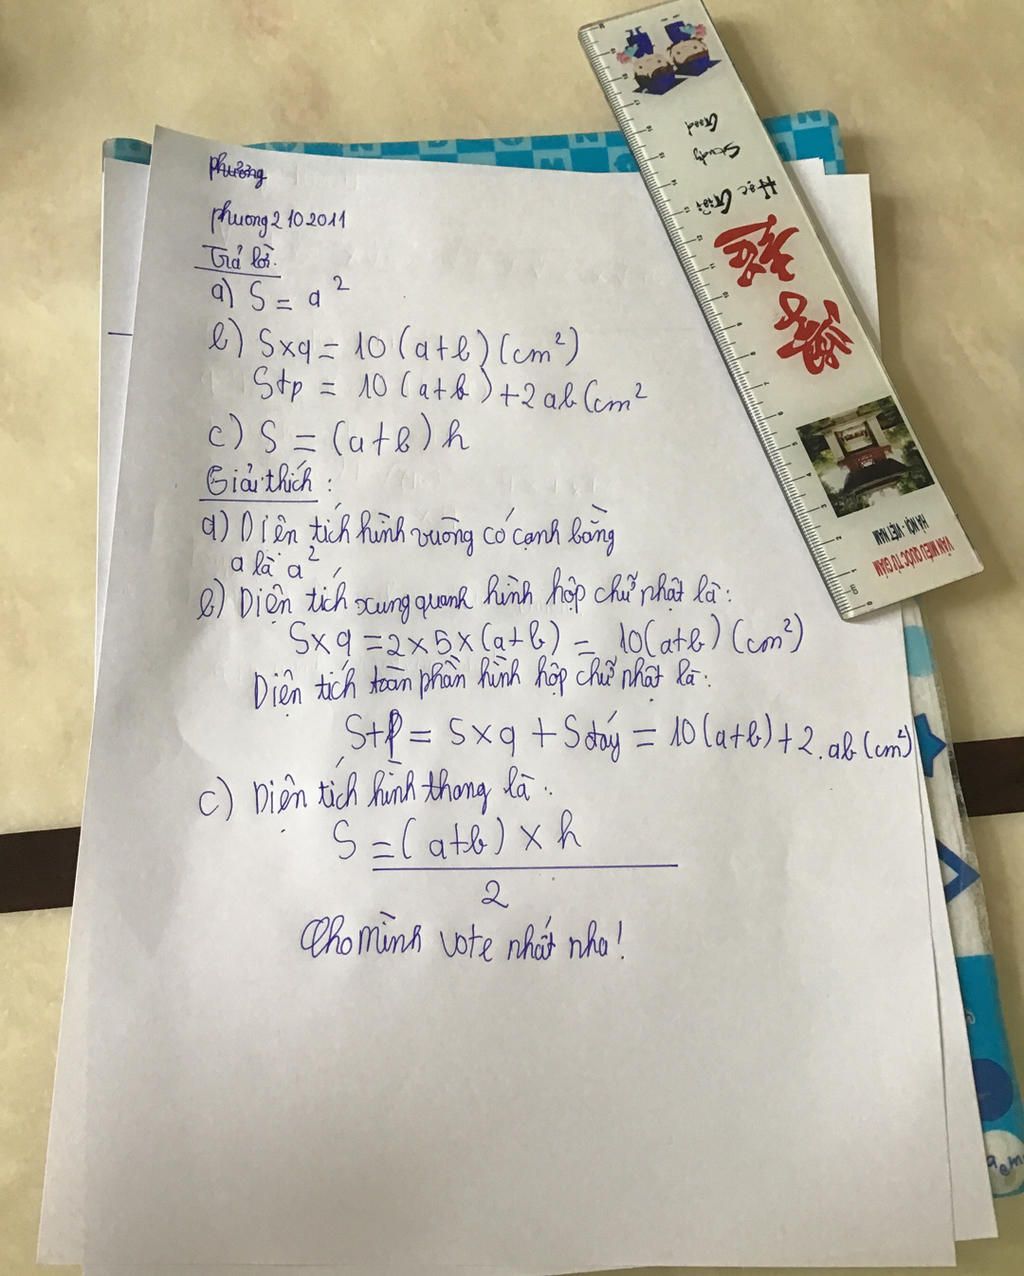 phương
phuong2102011
Trả lời.
a) S = a²
b) Sxq = 10(a+b)(cm²)
Stp = 10(a+b)+2ab(cm²
c) S = (a+b)h
Giải thích:
a) Diện tích hình vuông có cạnh bằng
a là a²
b) Diện tích xung quanh hình hộp chữ nhật là:
Sxq = 2×5×(a+b) = 10(a+b)(cm²)
Diện tích toàn phần hình hộp chữ nhật là:
Stp = Sxq + Sđáy = 10(a+b)+2.ab(cm²)
c) Diện tích hình thang là:
S = (a+b)×h
2
Cho mình vote nhất nha!
Good
Study
Học Giỏi
HÀ NỘI - VIỆT NAM
VĂN MIẾU QUỐC TỬ GIÁM